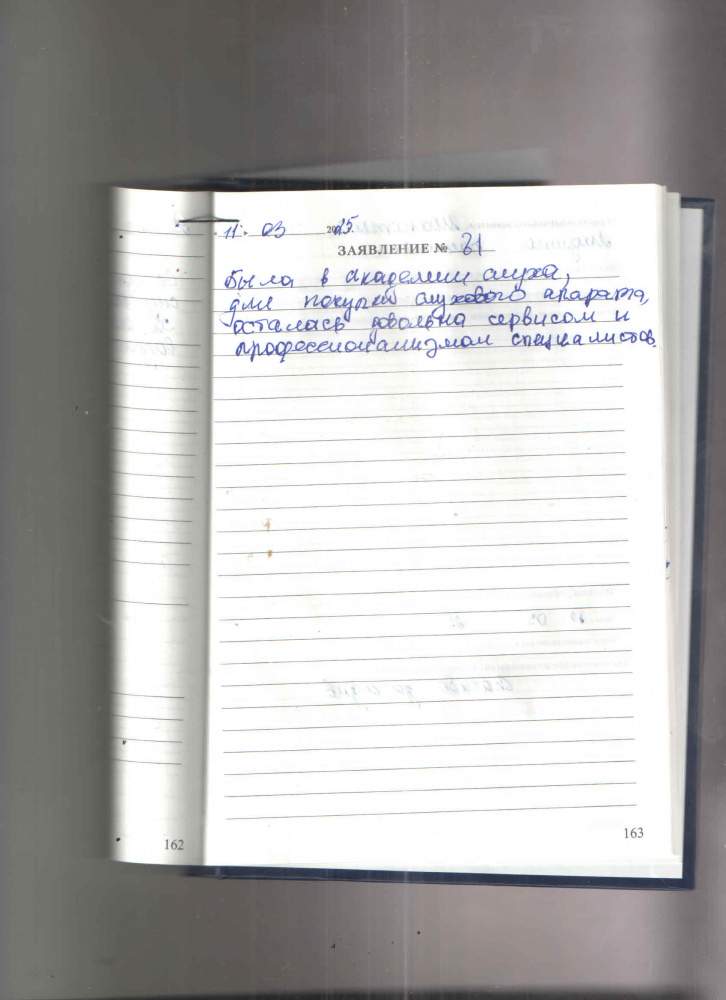 11. 03 2025
ЗАЯВЛЕНИЕ № 31
Была в академии слуха,
для покупки слухового апарата,
осталась довольна сервисом и
профессионализмом специалистов.
162
163